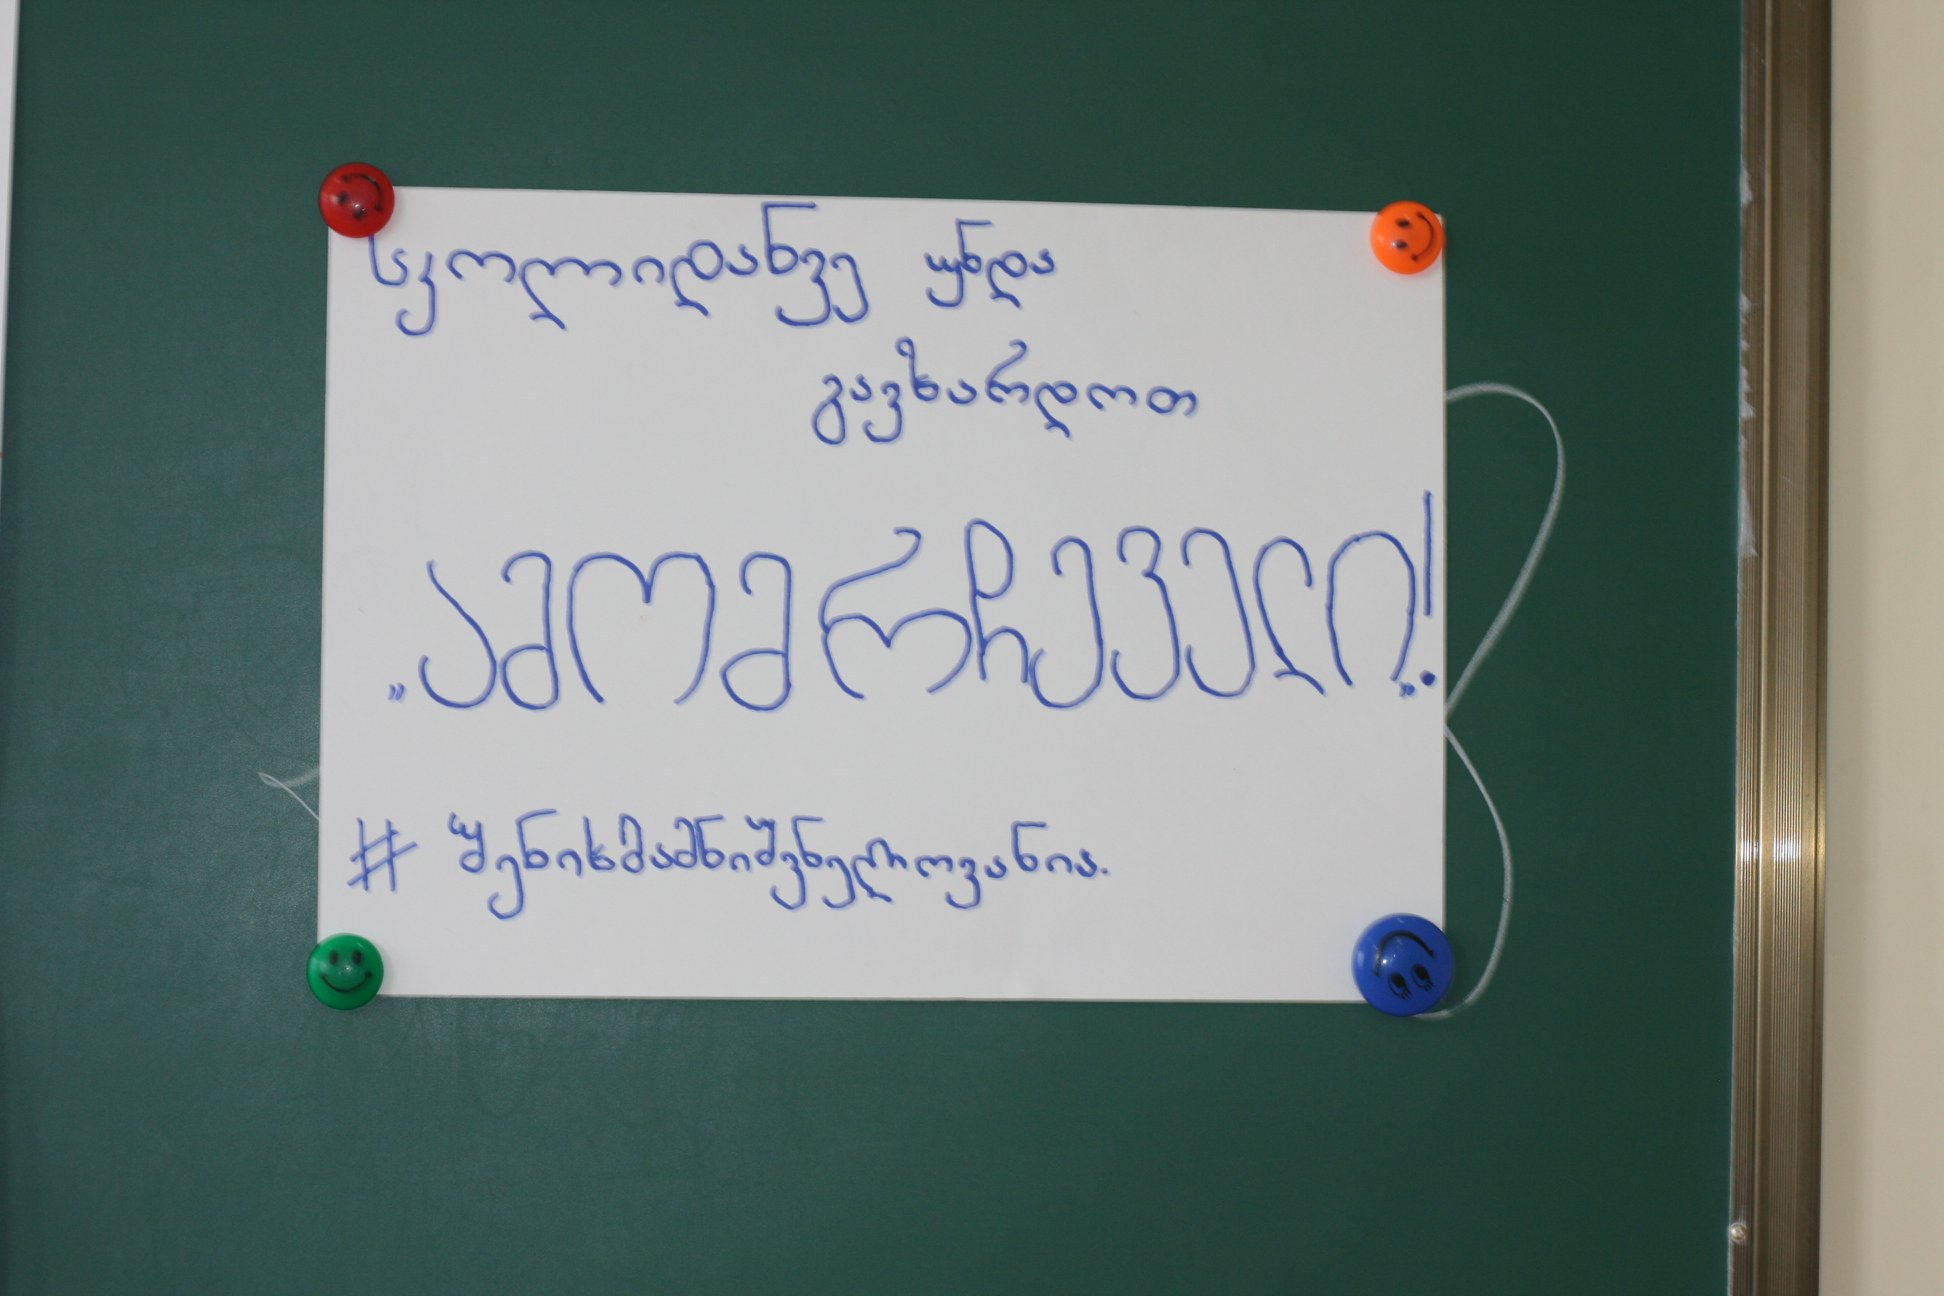 სკოლიდანვე უნდა
გავზარდოთ
„ამომრჩეველი”!
# შენიხმამნიშვნელოვანია.